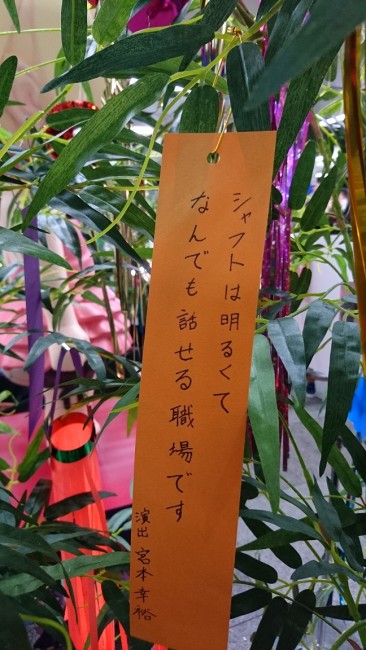 シャフトは明るくて
なんでも話せる職場です
演出 宮本幸裕